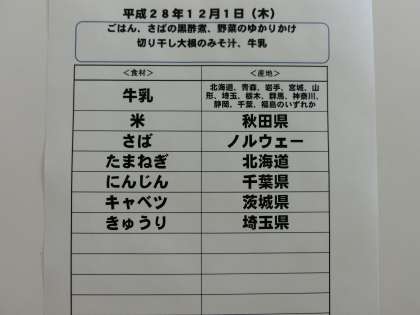 平成28年12月1日（木）
ごはん、さばの黒酢煮、野菜のゆかりかけ
切り干し大根のみそ汁、牛乳
＜食材＞ ＜産地＞
牛乳 北海道、青森、岩手、宮城、山
形、埼玉、栃木、群馬、神奈川、
静岡、千葉、福島のいずれか
米 秋田県
さば ノルウェー
たまねぎ 北海道
にんじん 千葉県
キャベツ 茨城県
きゅうり 埼玉県